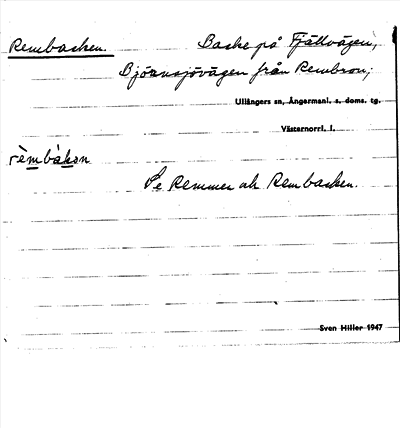 Rembacken. Backe på Fjällvägen,
Björnsjövägen från Rembron;
Ullångers sn, Ångermanl. s. doms. tg.
Västernorrl. l.
rèmbàkən
Se Remmen ak Rembacken.
Sven Hiller 1947